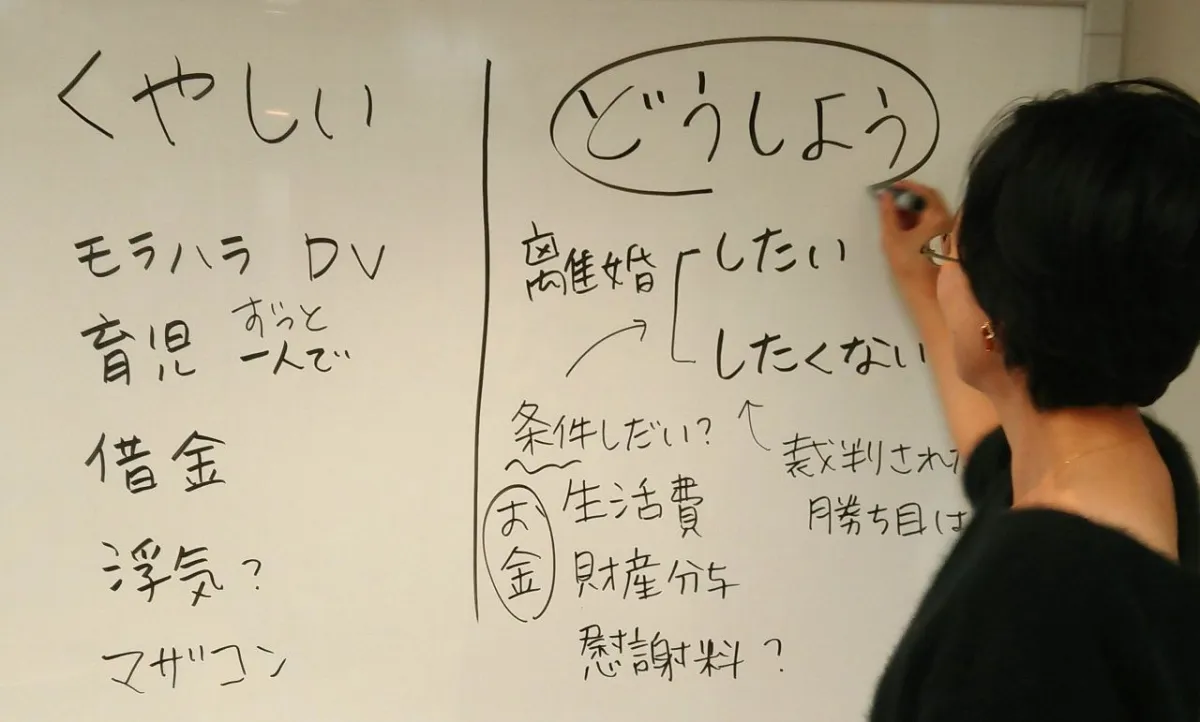 くやしい
モラハラ DV
育児 ずっと
一人で
借金
浮気?
マザコン
どうしよう
離婚 したい
したくない
条件しだい?
裁判され
勝ち目は
お金
生活費
財産分与
慰謝料?